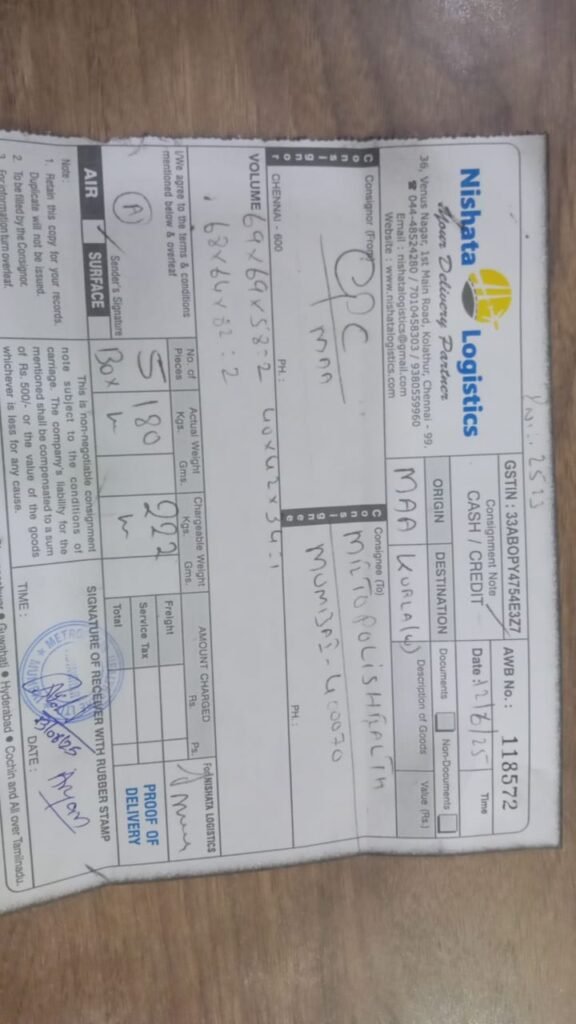 Nishata Logistics
Your Delivery Partner
36, Venus Nagar, 1st Main Road, Kolathur, Chennai - 99.
☎ 044-48524280 / 7010458303 / 9380559960
Email : nishatalogistics@gmail.com
Website : www.nishatalogistics.com
GSTIN : 33ABOPY4754E3Z7
Consignment Note
CASH / CREDIT
AWB No.: 118572
Date : 12/8/25
Time
ORIGIN
MAA
DESTINATION
KURLA (W)
Documents
Non-Documents
Description of Goods
Value (Rs.)
Consignor
Consignor (From)
CPC
MAA
CHENNAI - 600
PH.:
Consignee
Consignee (To)
METOPOLISHEALTH
MUMBAI - 400070
PH.:
VOLUME 69x69x58=2 40x42x34=1
68x64x82=2
I/We agree to the terms & conditions
mentioned below & overleaf
Sender's Signature
No. of Pieces
5
Box
Actual Weight
Kgs. Gms.
180
Chargeable Weight
Kgs. Gms.
222
AMOUNT CHARGED
Rs. Ps.
Freight
Service Tax
Total
For NISHATA LOGISTICS
PROOF OF
DELIVERY
AIR
SURFACE
Note :
1. Retain this copy for your records.
Duplicate will not be issued.
2. To be filled by the Consignor.
3. For information turn overleaf.
This is non-negotiable consignment
note subject to the conditions of
carriage. The company's liability for the
mentioned shall be compensated to a sum
of Rs. 500/- or the value of the goods
whichever is less for any cause.
SIGNATURE OF RECEIVER WITH RUBBER STAMP
Aryan
TIME :
DATE :
● Guwahati ● Hyderabad ● Cochin and All over Tamilnadu.